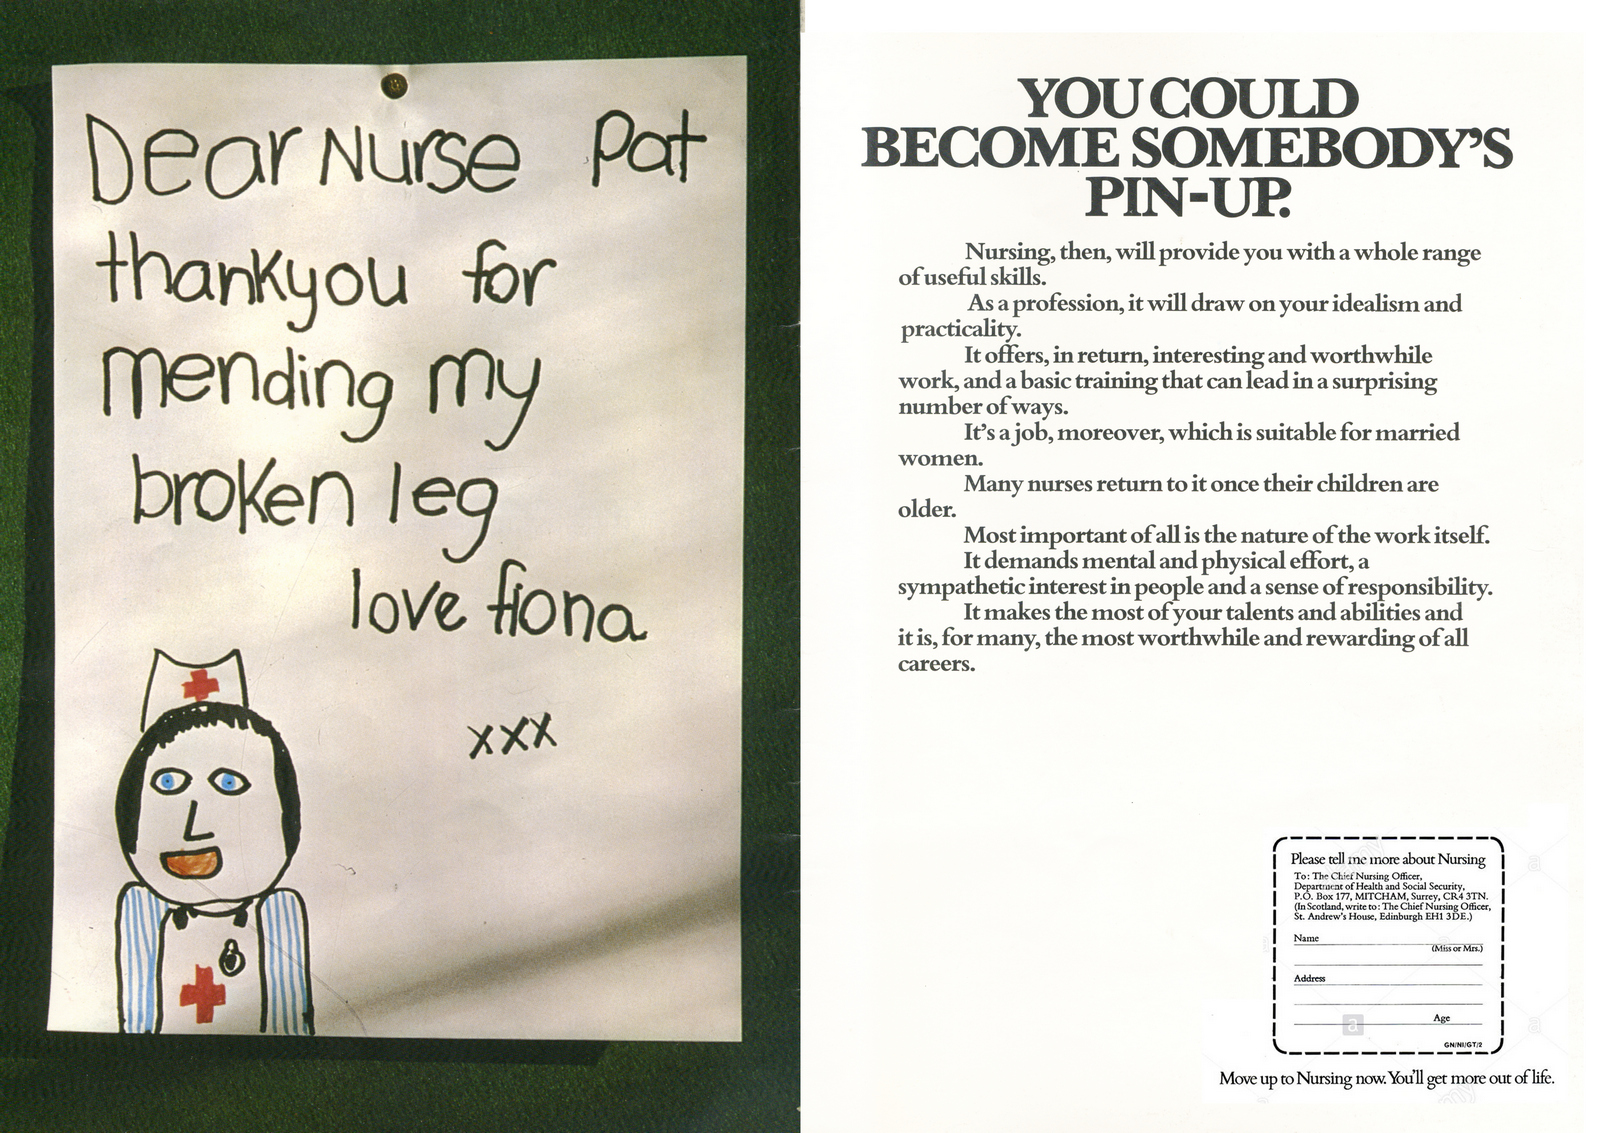 Dear Nurse Pat
thankyou for
mending my
broken leg
love fiona
xxx
YOU COULD
BECOME SOMEBODY'S
PIN-UP.
Nursing, then, will provide you with a whole range
of useful skills.
As a profession, it will draw on your idealism and
practicality.
It offers, in return, interesting and worthwhile
work, and a basic training that can lead in a surprising
number of ways.
It's a job, moreover, which is suitable for married
women.
Many nurses return to it once their children are
older.
Most important of all is the nature of the work itself.
It demands mental and physical effort, a
sympathetic interest in people and a sense of responsibility.
It makes the most of your talents and abilities and
it is, for many, the most worthwhile and rewarding of all
careers.
Please tell me more about Nursing
To: The Chief Nursing Officer,
Department of Health and Social Security,
P.O. Box 177, MITCHAM, Surrey, CR4 3TN.
(In Scotland, write to: The Chief Nursing Officer,
St. Andrew's House, Edinburgh EH1 3DE.)
Name
(Miss or Mrs.)
Address
Age
GN/NI/GT/2
Move up to Nursing now. You'll get more out of life.
a